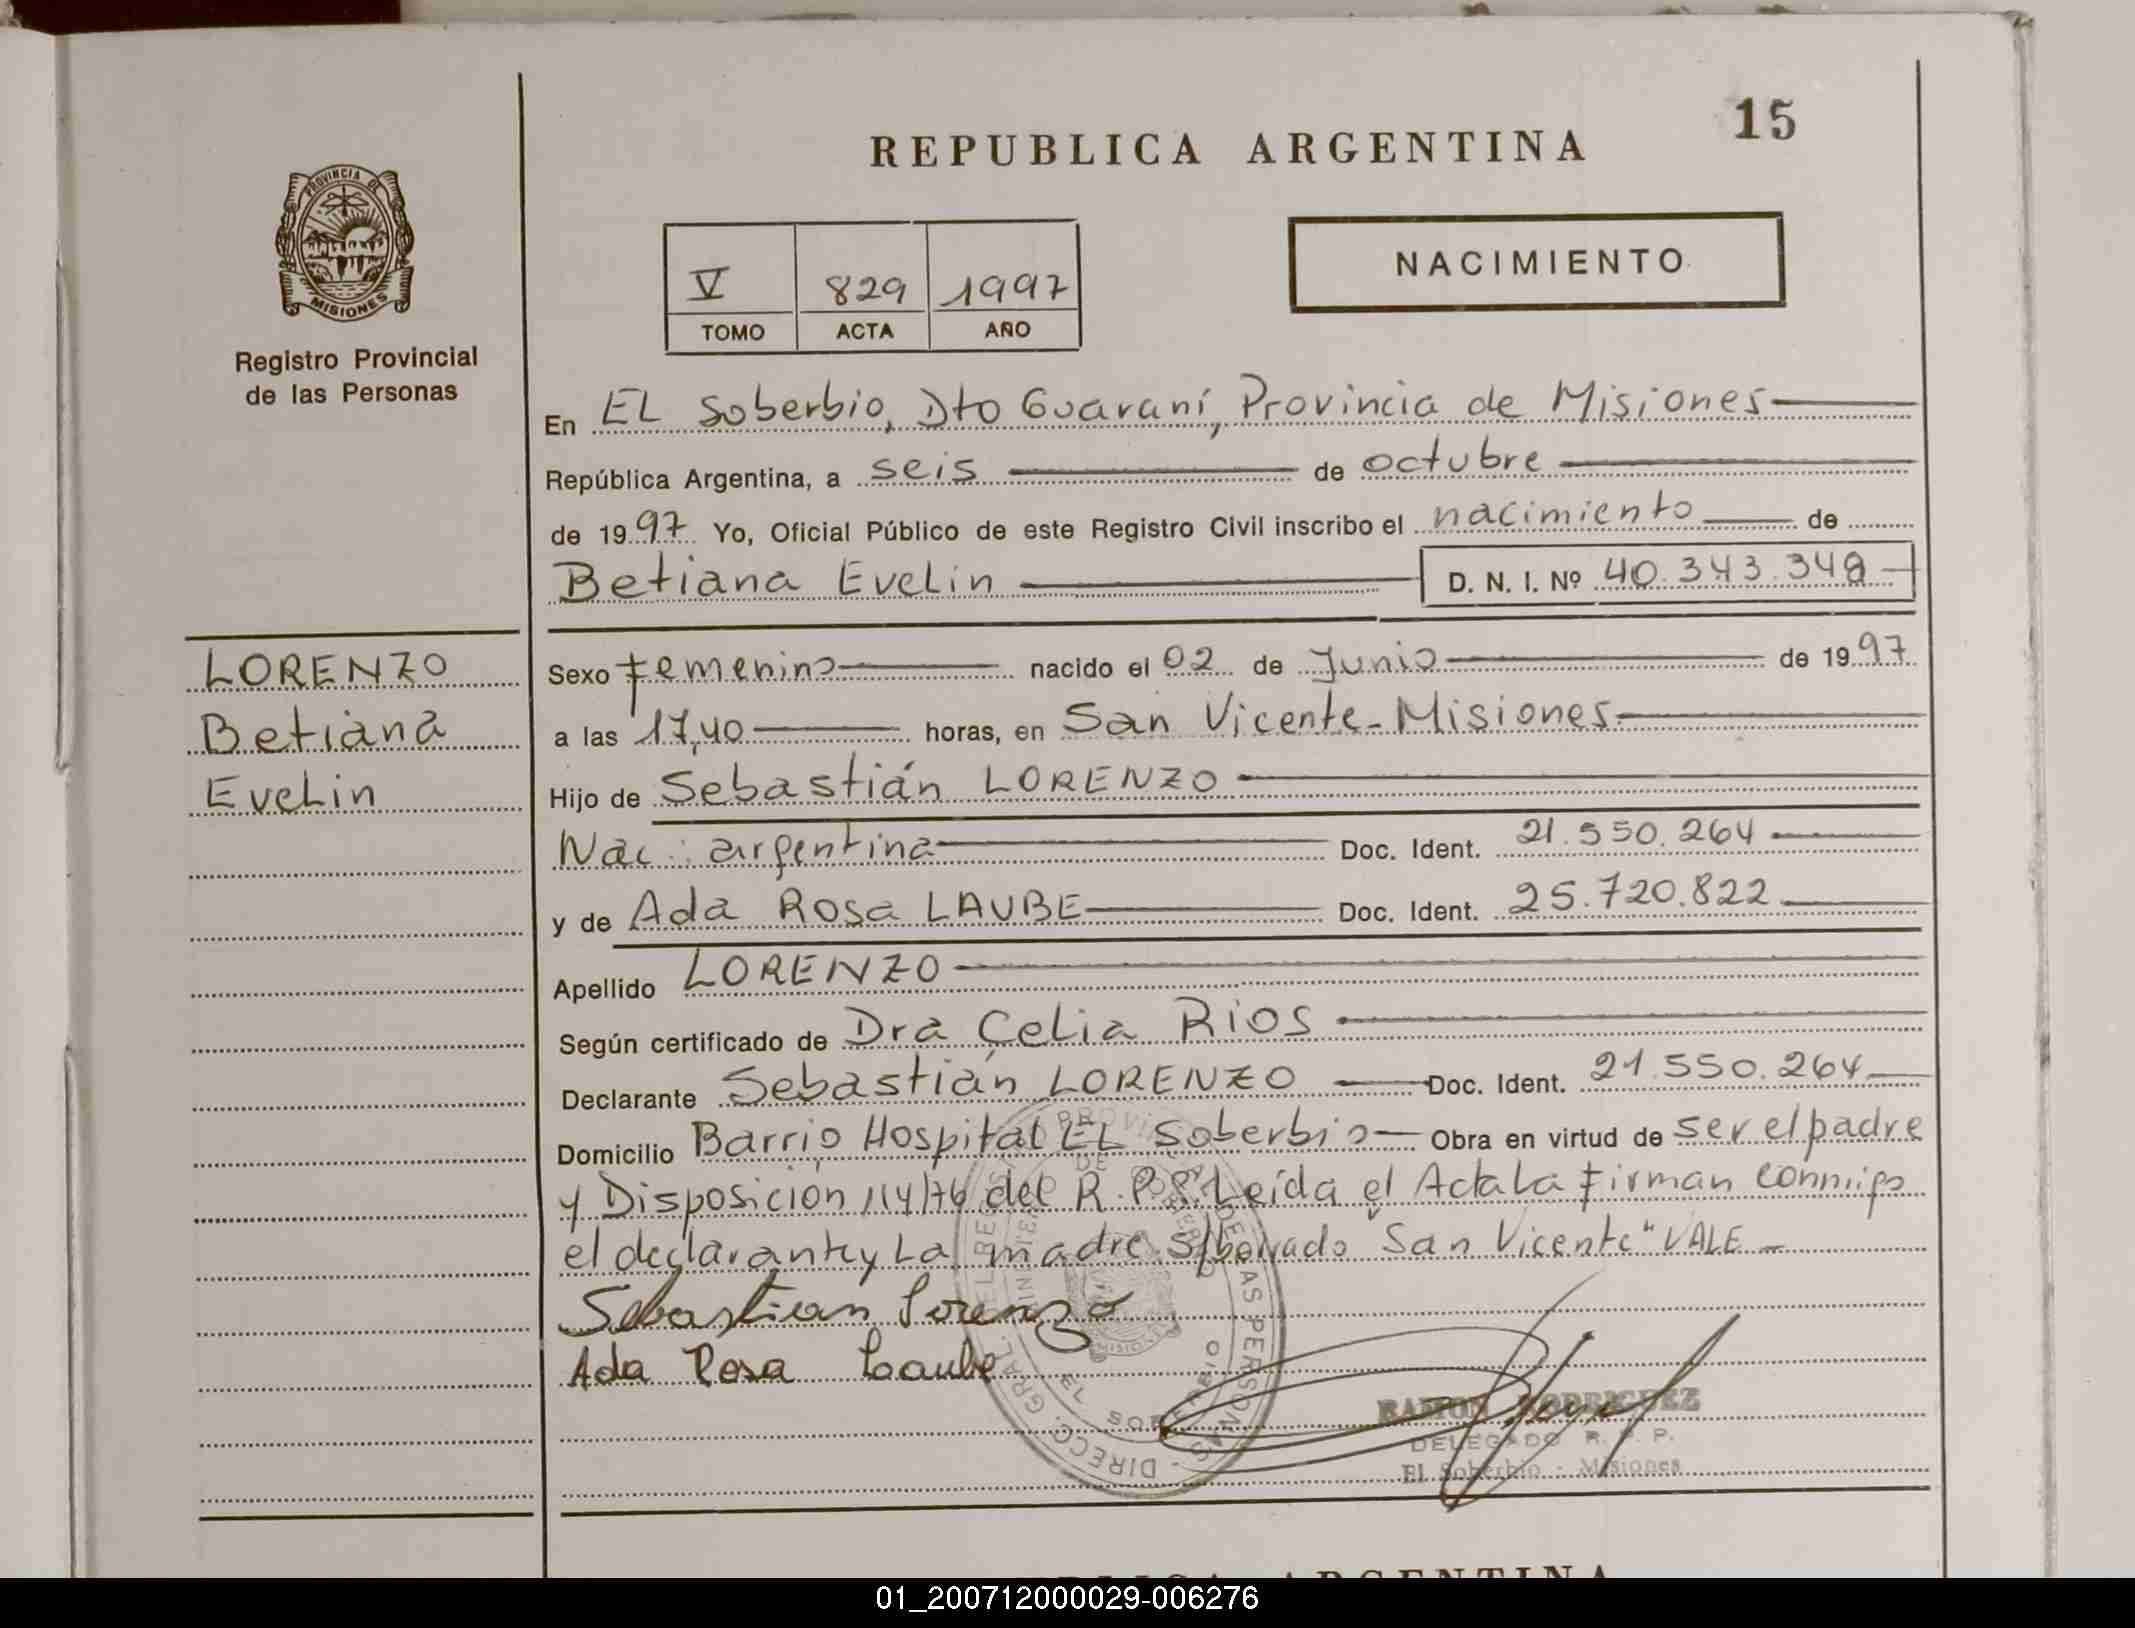 15
REPUBLICA ARGENTINA
PROVINCIA DE
MISIONES
Registro Provincial
de las Personas
V 829 1997
TOMO ACTA AÑO
NACIMIENTO
En EL Soberbio, Dto Guaraní, Provincia de Misiones
República Argentina, a seis de octubre
de 1997 Yo, Oficial Público de este Registro Civil inscribo el nacimiento de
Betiana Evelin D. N. I. Nº 40.343.348
LORENZO
Betiana
Evelin
Sexo femenino nacido el 02 de Junio de 1997
a las 17,40 horas, en San Vicente-Misiones
Hijo de Sebastián LORENZO
Nac: argentina Doc. Ident. 21.550.264
y de Ada Rosa LAUBE Doc. Ident. 25.720.822
Apellido LORENZO
Según certificado de Dra Celia RIOS
Declarante Sebastián LORENZO Doc. Ident. 21.550.264
Domicilio Barrio Hospital EL Soberbio Obra en virtud de ser el padre
y Disposición 114/76 del R.P.P. Leída el Acta La firman conmigo
el declarante y La madre. S/borrado "San Vicente" VALE
Sebastian Lorenzo
Ada Rosa Laube
RAMON RODRIGUEZ
DELEGADO R. P. P.
El Soberbio - Misiones
01_200712000029-006276